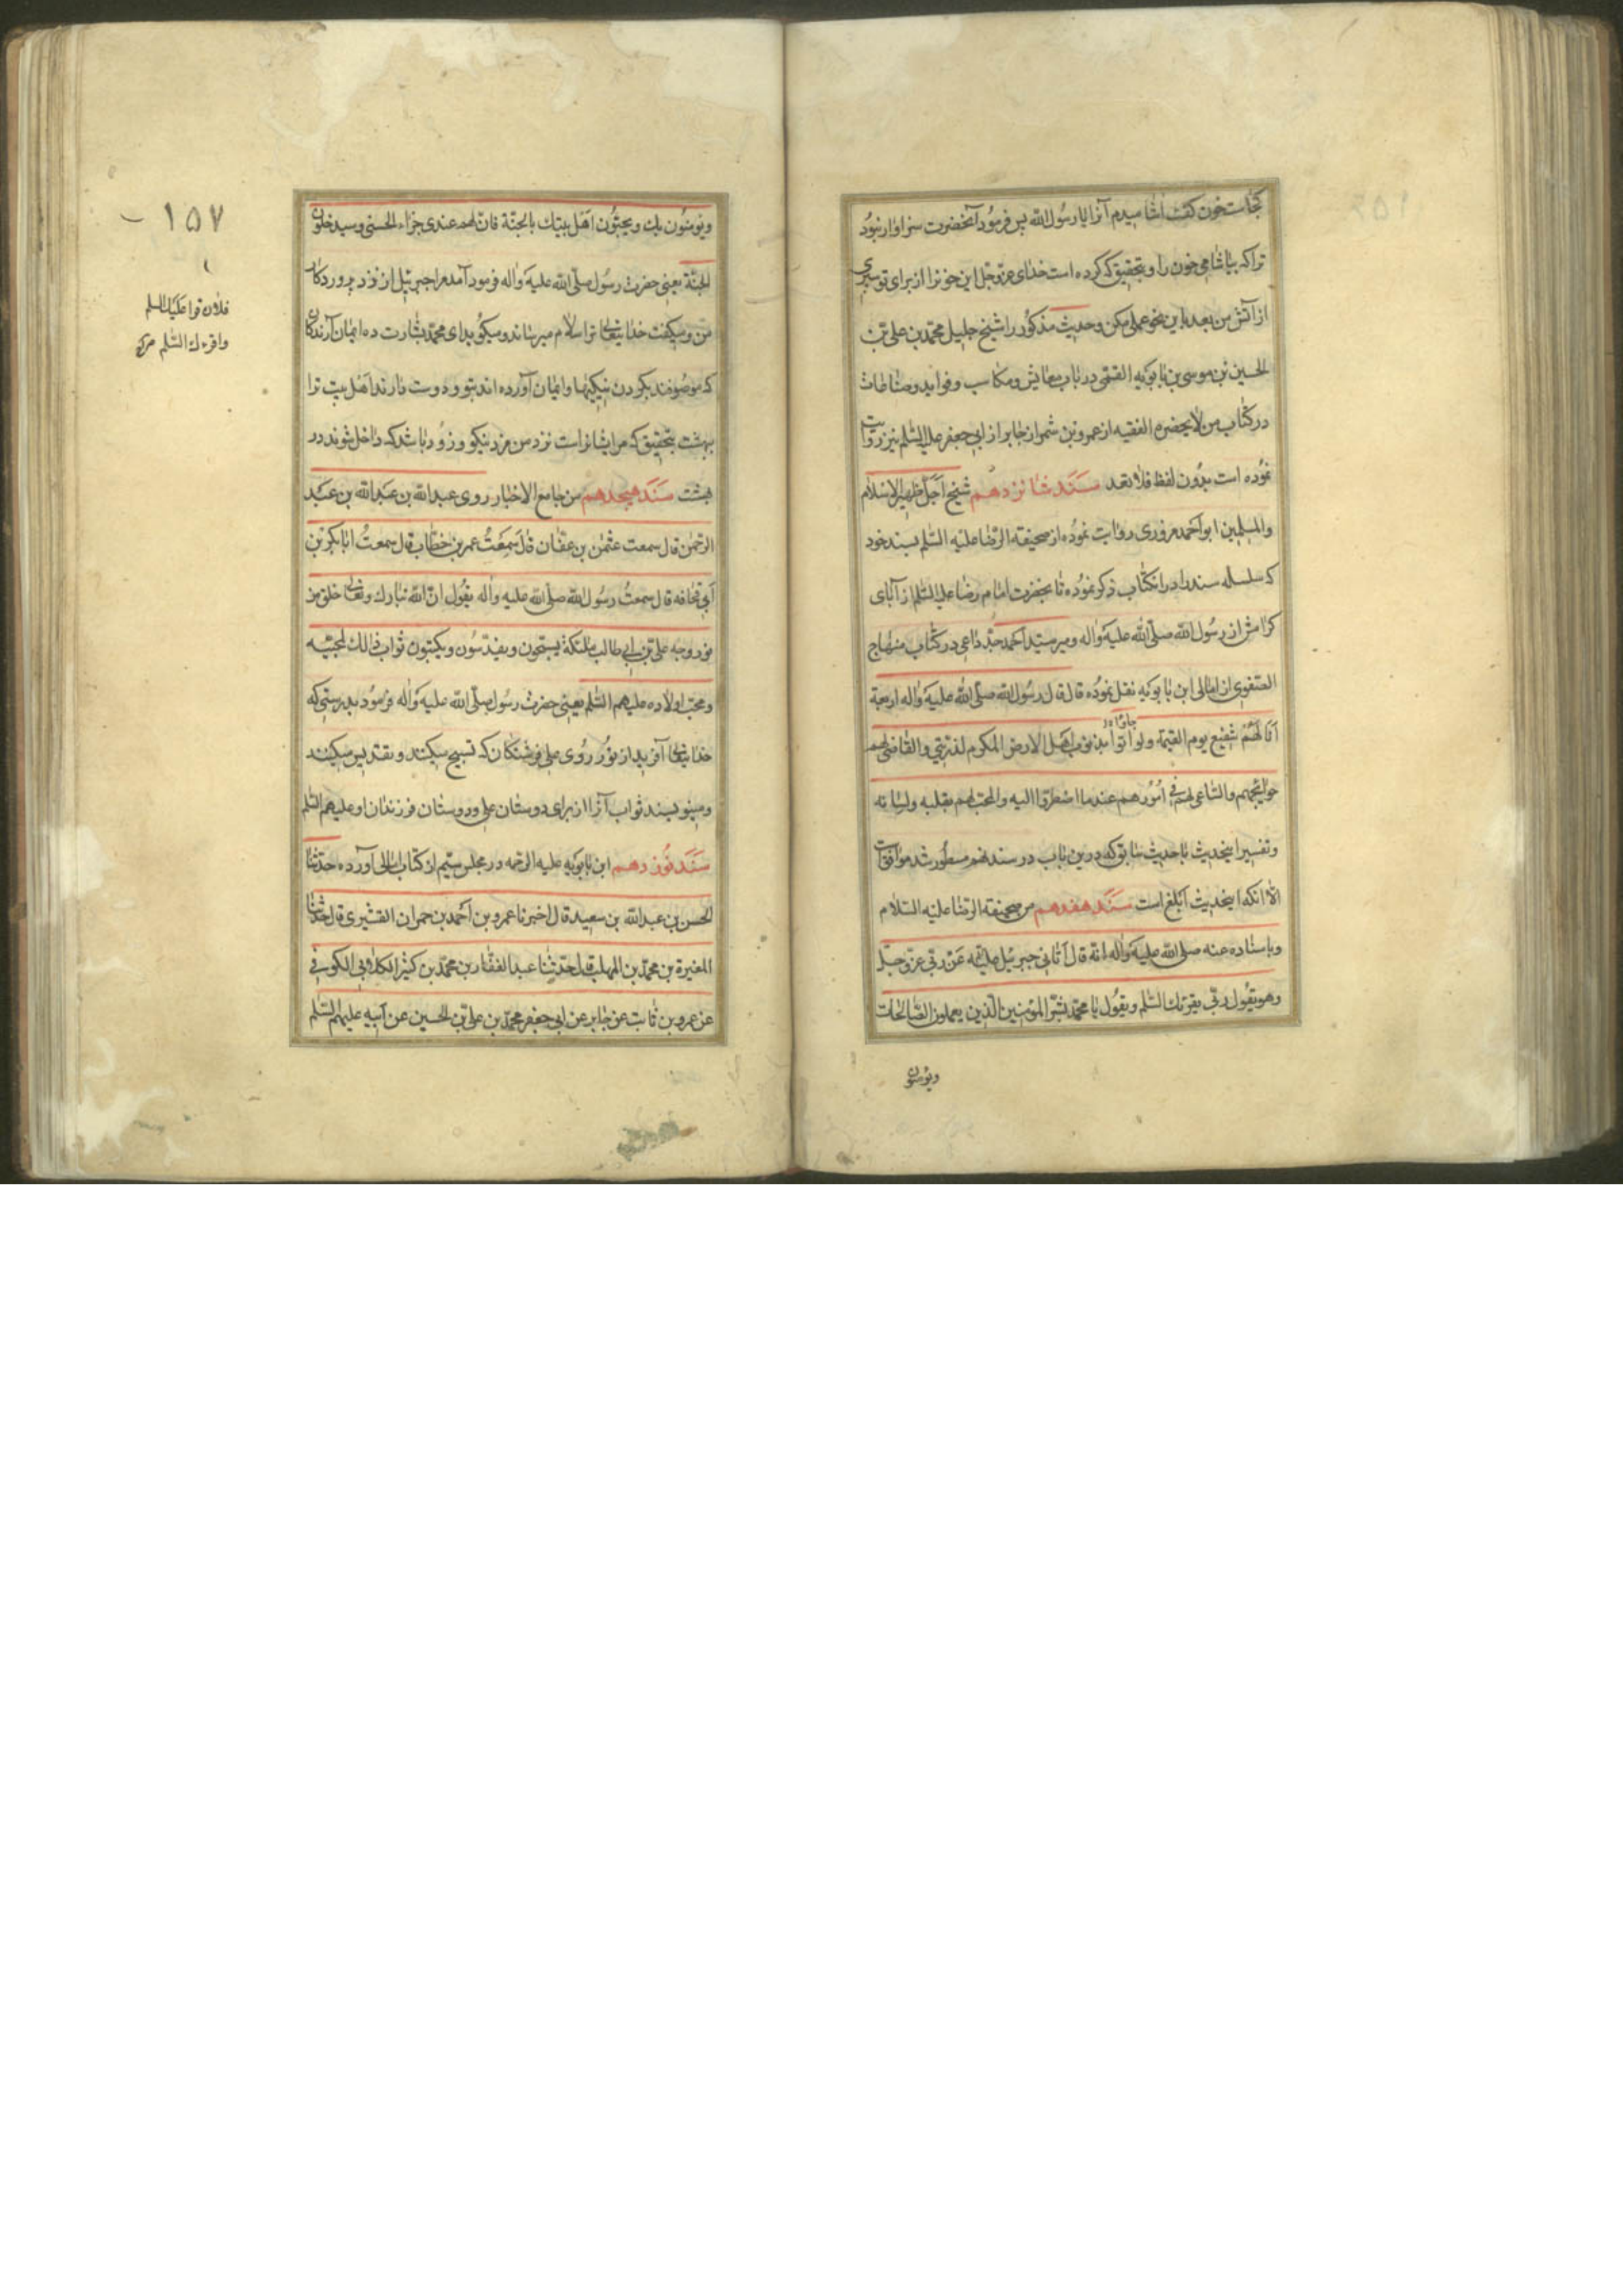 کجاست خون گفت اشامیدم آنرا یا رسول الله پس فرمود آنحضرت سزاوار نبود
ترا که بیاشامی خون را و بتحقیق که کرده است خدای عزوجل این خونرا از برای تو سپری
از آتش من بعد باین نحو عملی مکن و حدیث مذکور را شیخ جلیل محمد بن علی بن
الحسین بن موسی بن بابویه القمی در باب معایش و مکاسب و فواید و صناعات
در کتاب من لایحضره الفقیه از عمرو بن شمر از جابر از ابی جعفر علیه السلم نیز روایت
نموده است بدون لفظ فلا تعد سند شانزدهم شیخ اجل ظهیر الاسلام
والمسلمین ابو احمد مروزی روایت نموده از صحیفة الرضا علیه السلم بسند خود
که سلسله سند را در انکتاب ذکر نموده تا بحضرت امام رضا علیه السلم از آبای
کرامش از رسول الله صلی الله علیه واله و میر سید احمد جد داعی در کتاب منهاج
الصفوی از امالی ابن بابویه نقل نموده قال قال رسول الله صلی الله علیه واله اربعة
انا لهم شفیع یوم القیمة ولو اتوا بذنوب اهل الارض المکرم لذریتی والقاضی لهم
جاؤا
حوائجهم والساعی لهم فی امورهم عند ما اضطروا الیه والمحب لهم بقلبه ولسانه
وتفسیر اینحدیث با حدیث سابق که درین باب در سند نهم مسطور شد موافقت
الا انکه اینحدیث ابلغ است سند هفدهم من صحیفة الرضا علیه السلام
وباسناده عنه صلی الله علیه واله انه قال اتانی جبرئیل علیه عن ربی عز وجل
وهو یقول ربی یقرئك السلم ویقول یا محمد بشر المؤمنین الذین یعملون الصالحات
ویؤمنون
ویؤمنون بك ویحبون اهل بیتك بالجنة فان لهم عندی جزاء الحسنی وسیدخلون
الجنة یعنی حضرت رسول صلی الله علیه واله فرمود آمد مرا جبرئیل از نزد پروردکار
من ومیکفت خدایتعالی ترا سلام میرساند ومیکوید ای محمد بشارت ده ایمان آرندکان
که موصوفند بکردن نیکیها وایمان آورده اند بتو ودوست دارند اهل بیت ترا
ببهشت بتحقیق که مرایشانراست نزد من مزد نیکو وزود باشد که داخل شوند در
بهشت سند هیجدهم من جامع الاخبار روی عبد الله بن عبد الله بن عبد
الرحمن قال سمعت عثمن بن عفان قال سمعت عمر بن خطاب قال سمعت ابا بکر بن
ابی قحافه قال سمعت رسول الله صلی الله علیه واله یقول ان الله تبارك وتعالی خلق من
نور وجه علی بن ابی طالب ملئکة یسبحون ویقدسون ویکتبون ثواب ذالك لمحبیه
ومحب اولاده علیهم السلم یعنی حضرت رسول صلی الله علیه واله فرمود بدرستی که
خدایتعالی آفرید از نور روی علی فرشتکان که تسبیح میکنند وتقدیس میکنند
ومینویسند ثواب آنرا از برای دوستان علی ودوستان فرزندان او علیهم السلم
سند نوزدهم ابن بابویه علیه الرحمه در مجلس سیم از کتاب امالی آورده حدثنا
الحسن بن عبد الله بن سعید قال اخبرنا عمرو بن احمد بن حمران القشیری قال حدثنا
المغیرة بن محمد بن المهلب قال حدثنا عبد الغفار بن محمد بن کثیر الکلابی الکوفی
عن عمرو بن ثابت عن جابر عن ابی جعفر محمد بن علی بن الحسین عن ابیه علیهم السلم
١٥٧
فلان قرا علیك السلم
واقرءك السلم